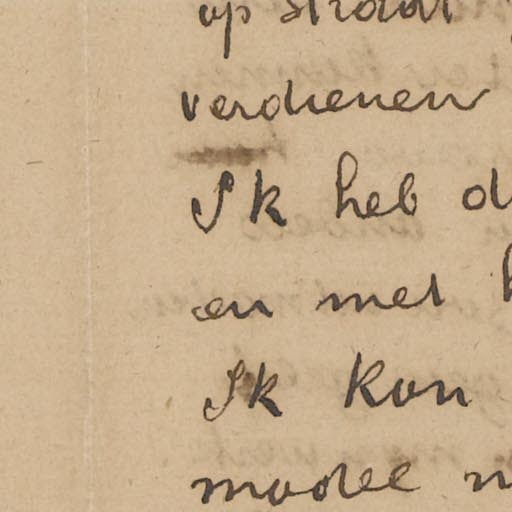 op straat
verdienen
Ik heb d
en met h
Ik kon
modee n